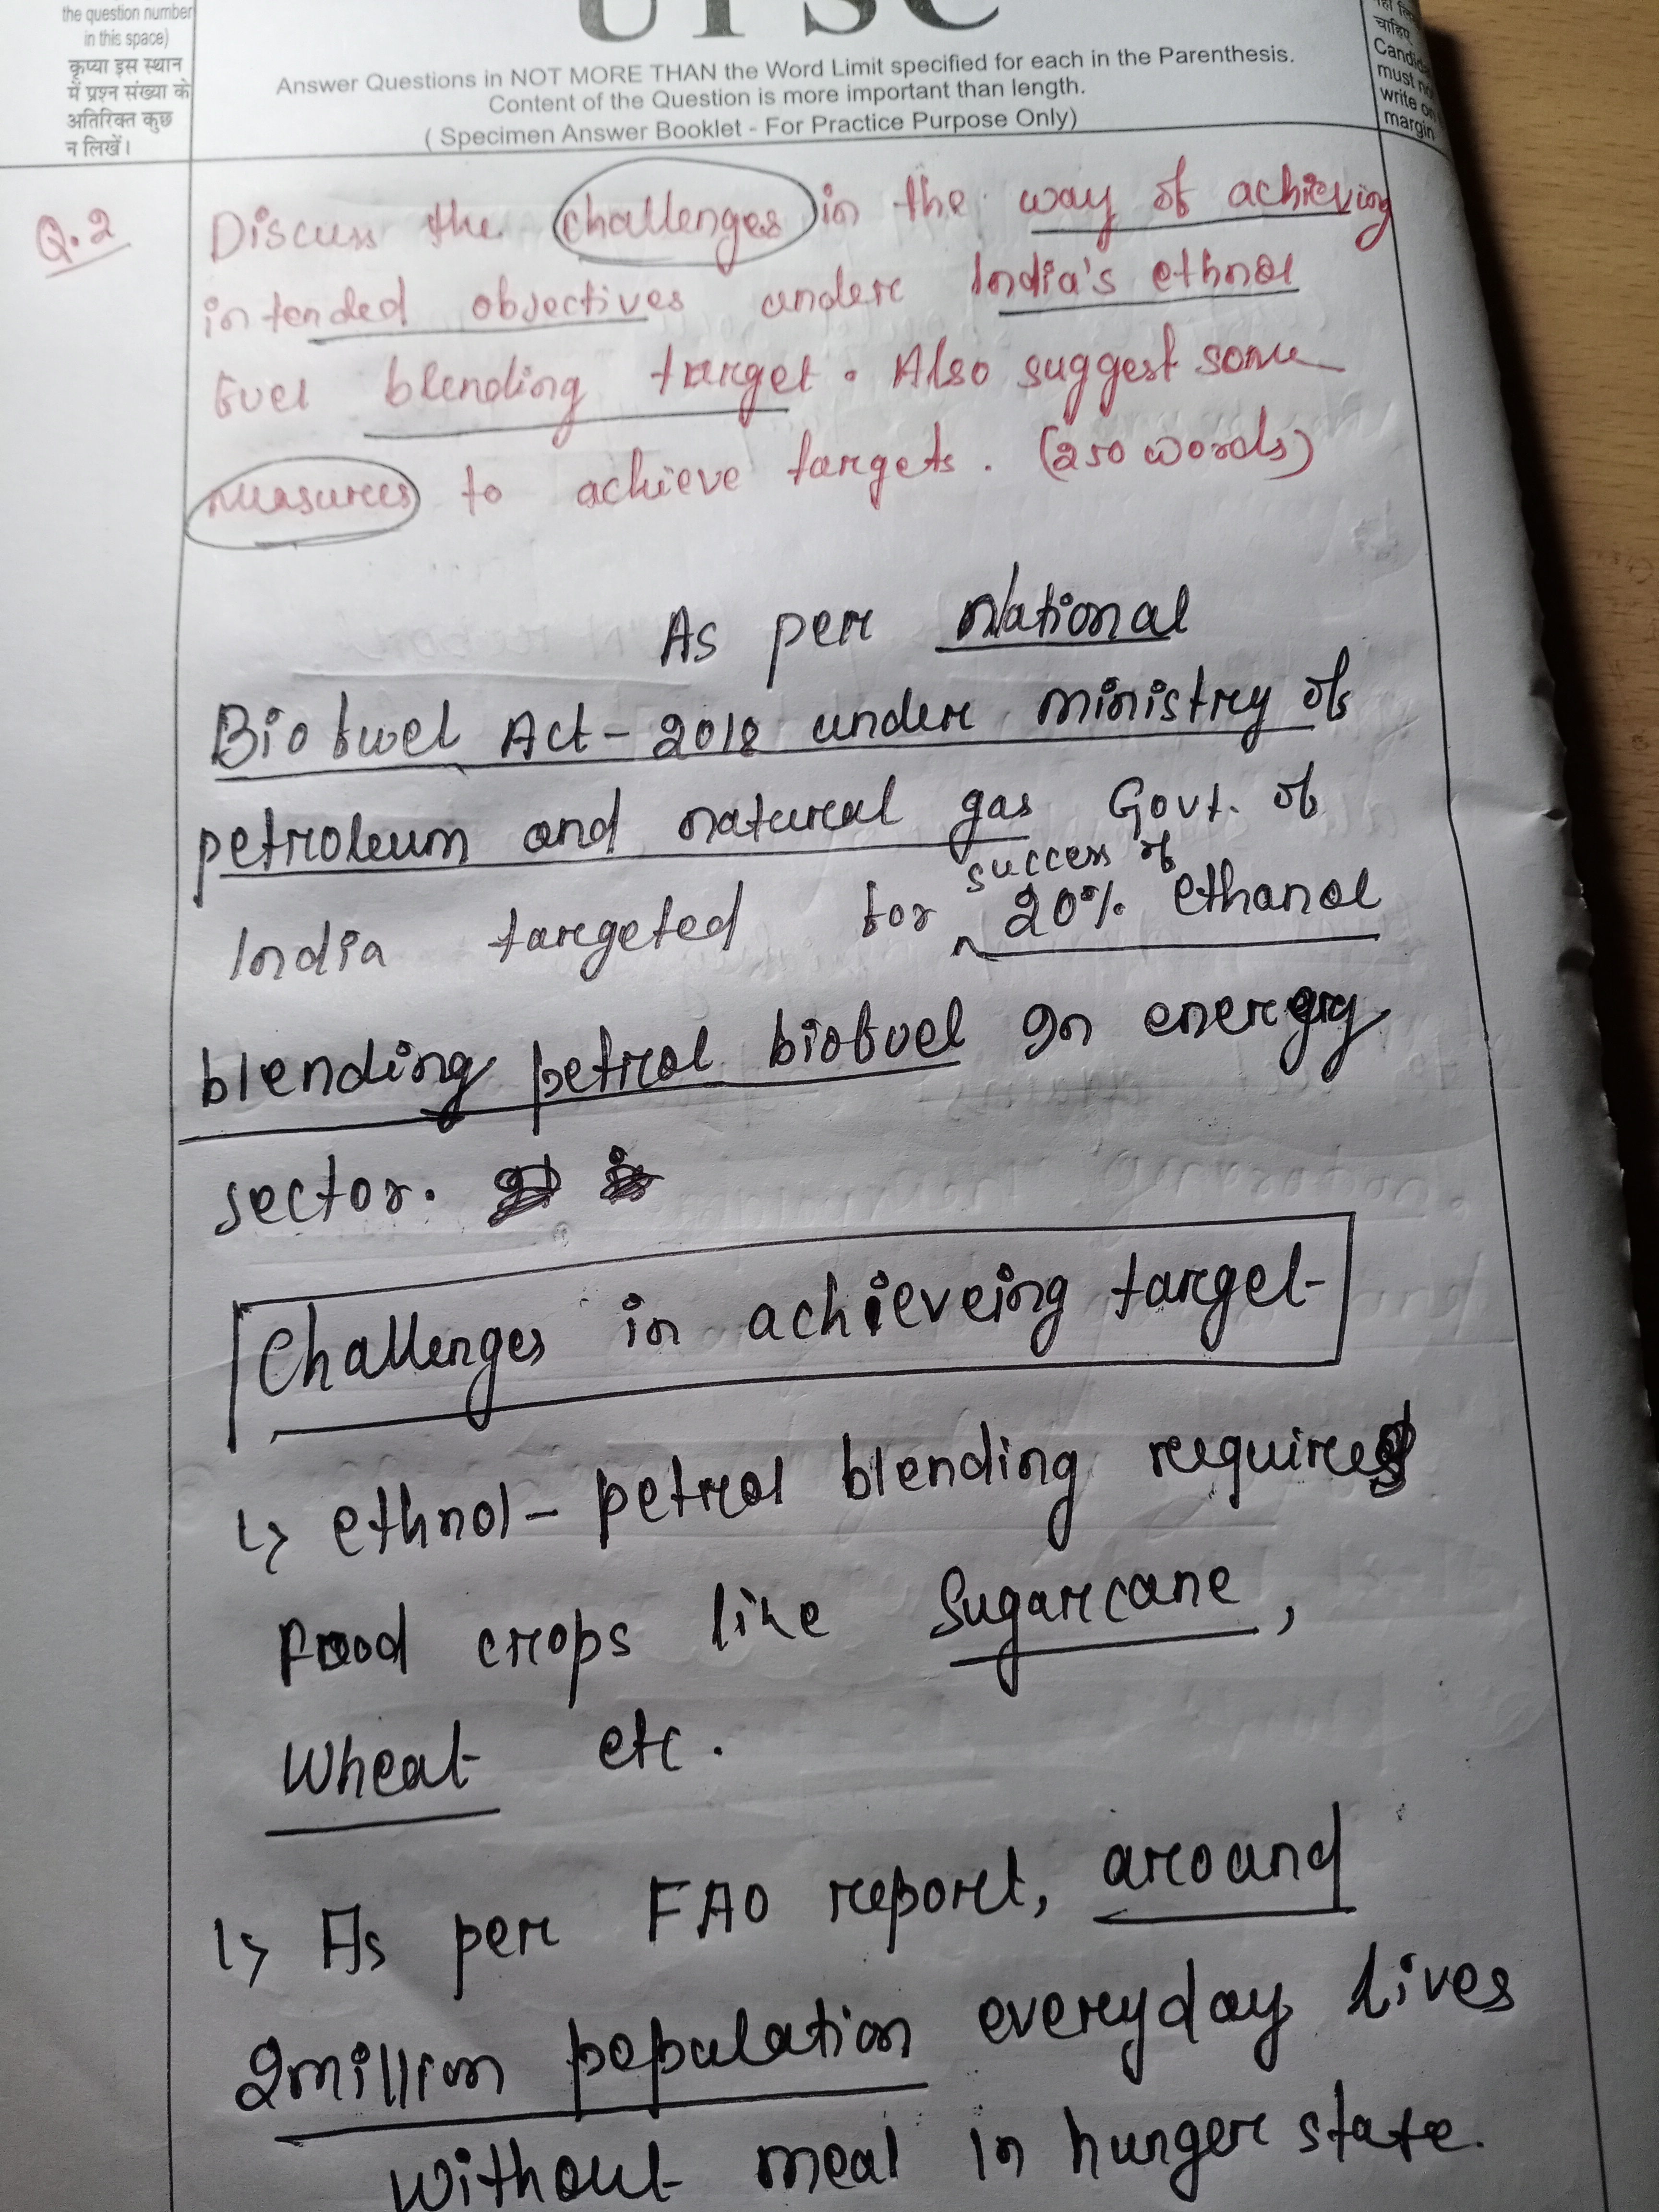 the question number
in this space)
कृप्या इस स्थान
में प्रश्न संख्या के
अतिरिक्त कुछ
न लिखें।
UPSC
Answer Questions in NOT MORE THAN the Word Limit specified for each in the Parenthesis.
Content of the Question is more important than length.
( Specimen Answer Booklet - For Practice Purpose Only)
चाहिए
must no
write on
margin
Q.2
Discuss the challenges in the way of achieving
intended objectives under India's ethnol
fuel blending target. Also suggest some
measures to achieve targets. (250 words)
As per National
Biofuel Act - 2018 under ministry of
petroleum and natural gas Govt. of
India targeted for success of 20% ethanol
blending petrol biofuel In energy
sector.
Challenges in achieveing target-
↳ ethnol - petrol blending requires
Food crops like Sugarcane,
Wheat etc.
↳ As per FAO report, around
2million population everyday lives
without meal in hunger state.